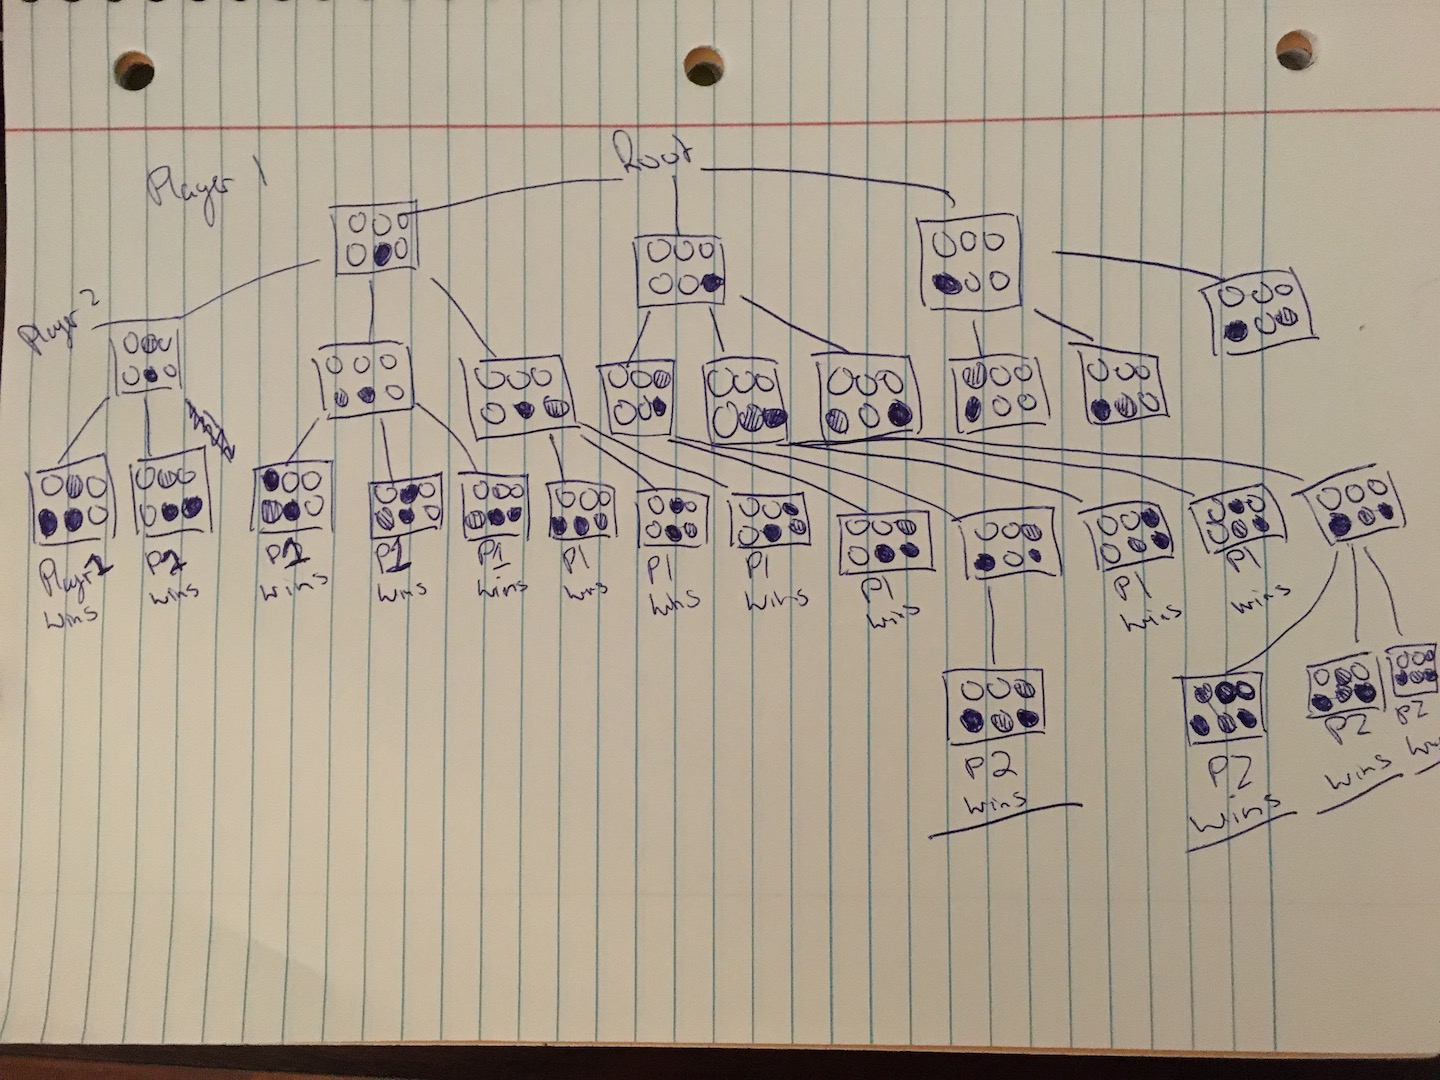 Root
Player 1
Player 2
Player 1
wins
P1
wins
P1
wins
P1
wins
P1
wins
P1
wins
P1
wins
P1
wins
P1
wins
P1
wins
P1
wins
P2
wins
P2
wins
P2
wins
P2